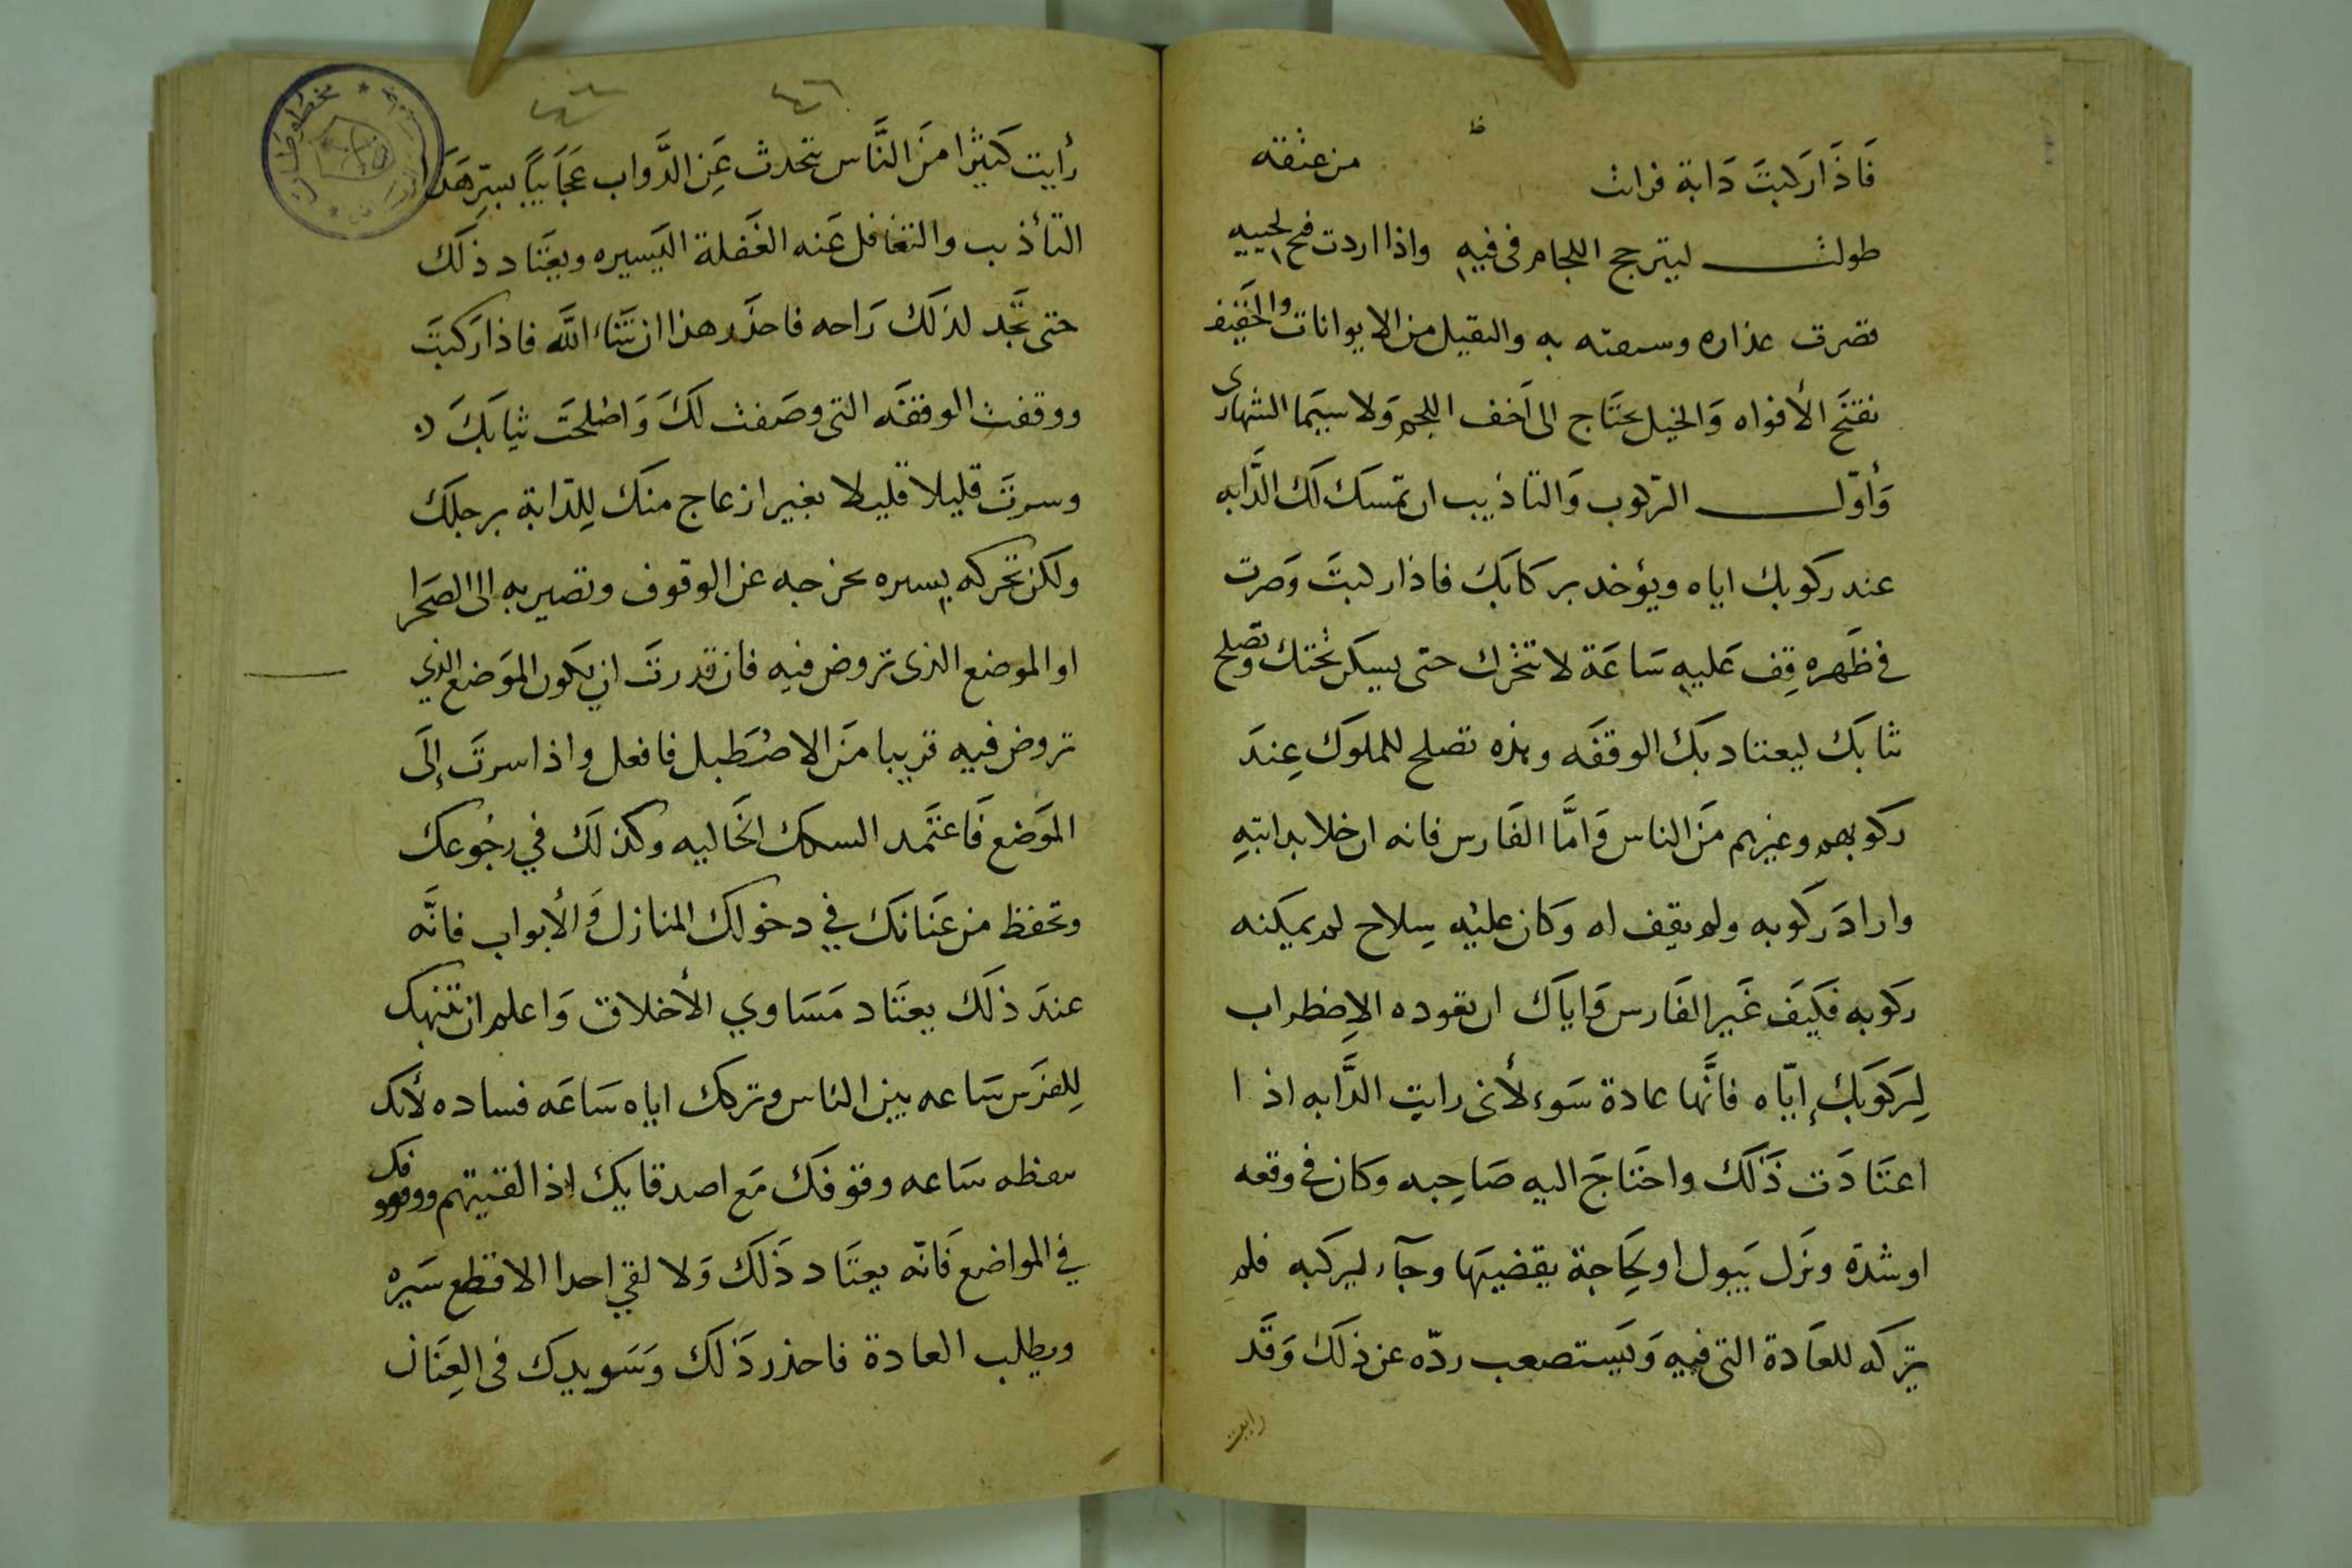 فَاذَا رَكبتَ دَابة فراث من عنقه
طولت ليترجج اللجام فى فيه واذا اردت فتح لحييه
قصرت عذاره وسعته به والثقيل من الايوانات والخفيف
نفتَح الأفواه وَالخيل يحتَاج الى اَخف اللجم وَلا سيَما الشهارى
وَأوّل الرّكوب وَالتاذيب ان تمسك لَك الدَّابه
عند ركوبك اياه ويؤخد بركابَك فاذا ركبتَ وَصرت
في ظَهره قِف عَليه سَاعَة لا تتحرك حتى يسكن تحتك وتصلح
ثيابَك ليعتاد بَك الوقفَه وهذه تصلح للملوَك عِندَ
ركوبهم وغيرهم مَن الناس وَامَّا الفَارس فانه ان خلا بدابتهِ
واراد رَكوبه ولم يقِف له وَكان عليْه سِلاح لم يمكنه
ركَوبه فكَيَف غَير الفَارس وَاياَك ان تعوده الاِضطراب
لِرَكَوبَك إيّاه فانَّها عادة سَوء لأنى رايت الدَّابه اذا
اعتَادَت ذَلَك واحتَاجَ اليه صَاحِبه وَكان في وقعه
اوشدة ونزَل يَبول او لحِاجة يقضيَها وجآء ليركَبه فلم
يتركه للعَادة التى فيه وَيَستصعب ردّه عن ذلَك وَقَد
رايت
رأيت كَثيرًا منَ النَّاس تتحدث عَنِ الدَّواب عَجَايبًا بسترِ هَذَا
التأذيب والتغَافل عَنه الغَفلة اليَسيره ويعتَاد ذلَك
حتى تَجَد لذلَك رَاحه فاحذَر هذا ان شَاء اللَّه فاذا رَكبتَ
ووقفت الوقفَه التى وصَفت لَكَ وَاصْلحَت ثيابَكَ
وسرتَ قليلا قليلا بغير ازعاج منَك لِلدّابة برجلَك
ولكَن تحركه يسيره يخرجه عن الوقوف وتصير به الى الصَحرا
او الموضع الذى تروض فيه فان قدرتَ ان يكَون الموَضع الذي
تروض فيه قريبا منَ الاصْطَبل فافعل واذا سرتَ إلَى
الموَضع فَاعتَمد السكك الخَاليه وكذلَك في رجُوعك
وتحفظ من عَنَانَك في دخولك المنازل وَالأبواب فانَّه
عندَ ذلَك يعتَاد مَسَاوي الأخلاق وَاعلم ان تنهيك
لِلفرَس سَاعه بين الناس وتركك اياه سَاعَه فساده لأنك
سَاعه وقوفَك مَع اصدقايَك اذا لقيتهم ووقوفك
في المواضع فَانّه يعتَاد ذَلَك وَلا لقي احدا الا قطع سَيره
ويطلب العادة فاحذر ذَلَك وَسَويدك فى العِنَان